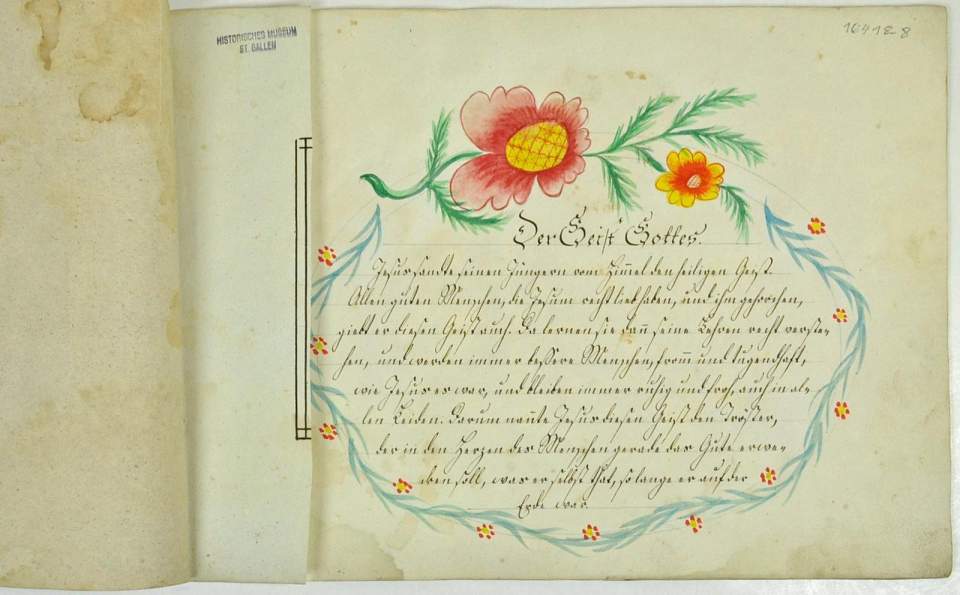 HISTORISCHES MUSEUM
ST. GALLEN
16412 8
Der Geist Gottes.
Jesus sandte seinen Jüngern vom Him̅el den heiligen Geist.
Allen guten Menschen, die Jesum recht liebhaben, und ihm gehorchen,
giebt er diesen Geist auch. Da lernen sie dan̅ seine Lehren recht verste-
hen, und werden immer bessere Menschen, from̅ und tugendhaft,
wie Jesus es war, und bleiben immer ruhig und froh, auch in al-
len Leiden. Darum nan̅te Jesus diesen Geist den Tröster,
der in den Herzen des Menschen gerade das Gute erwe-
cken soll, was er selbst that, so lange er auf der
Erde war.